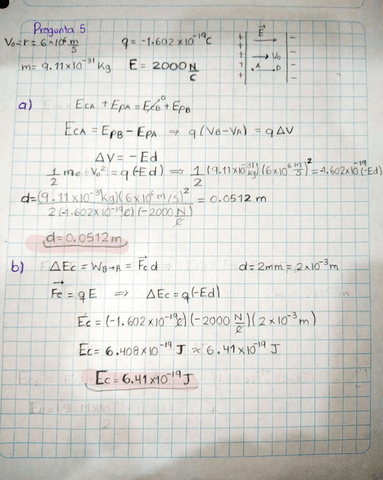 Pregunta 5
V₀=r=6×10⁶ m/s q=-1.602×10⁻¹⁹C
m=9.11×10⁻³¹Kg E=2000 N/C
+ E⃗ -
+ → V₀ -
+ A D -
a) E_CA + E_PA = E_CB⁰ + E_PB
E_CA = E_PB - E_PA ⇒ q(V_B-V_A) = qΔV
ΔV = -Ed
1/2 me V₀² = q(-Ed) ⇒ 1/2 (9.11×10⁻³¹kg)(6×10⁶ m/s)² = -1.602×10⁻¹⁹(-Ed)
d = (9.11×10⁻³¹kg)(6×10⁶ m/s)² / 2(-1.602×10⁻¹⁹C)(-2000 N/C) = 0.0512 m
d=0.0512m
b) ΔEc = W_B→A = F⃗e d d=2mm=2×10⁻³m
F⃗e = qE ⇒ ΔEc=q(-Ed)
Ec=(-1.602×10⁻¹⁹C)(-2000 N/C)(2×10⁻³m)
Ec=6.408×10⁻¹⁹ J ≈ 6.41×10⁻¹⁹ J
Ec=6.41×10⁻¹⁹J